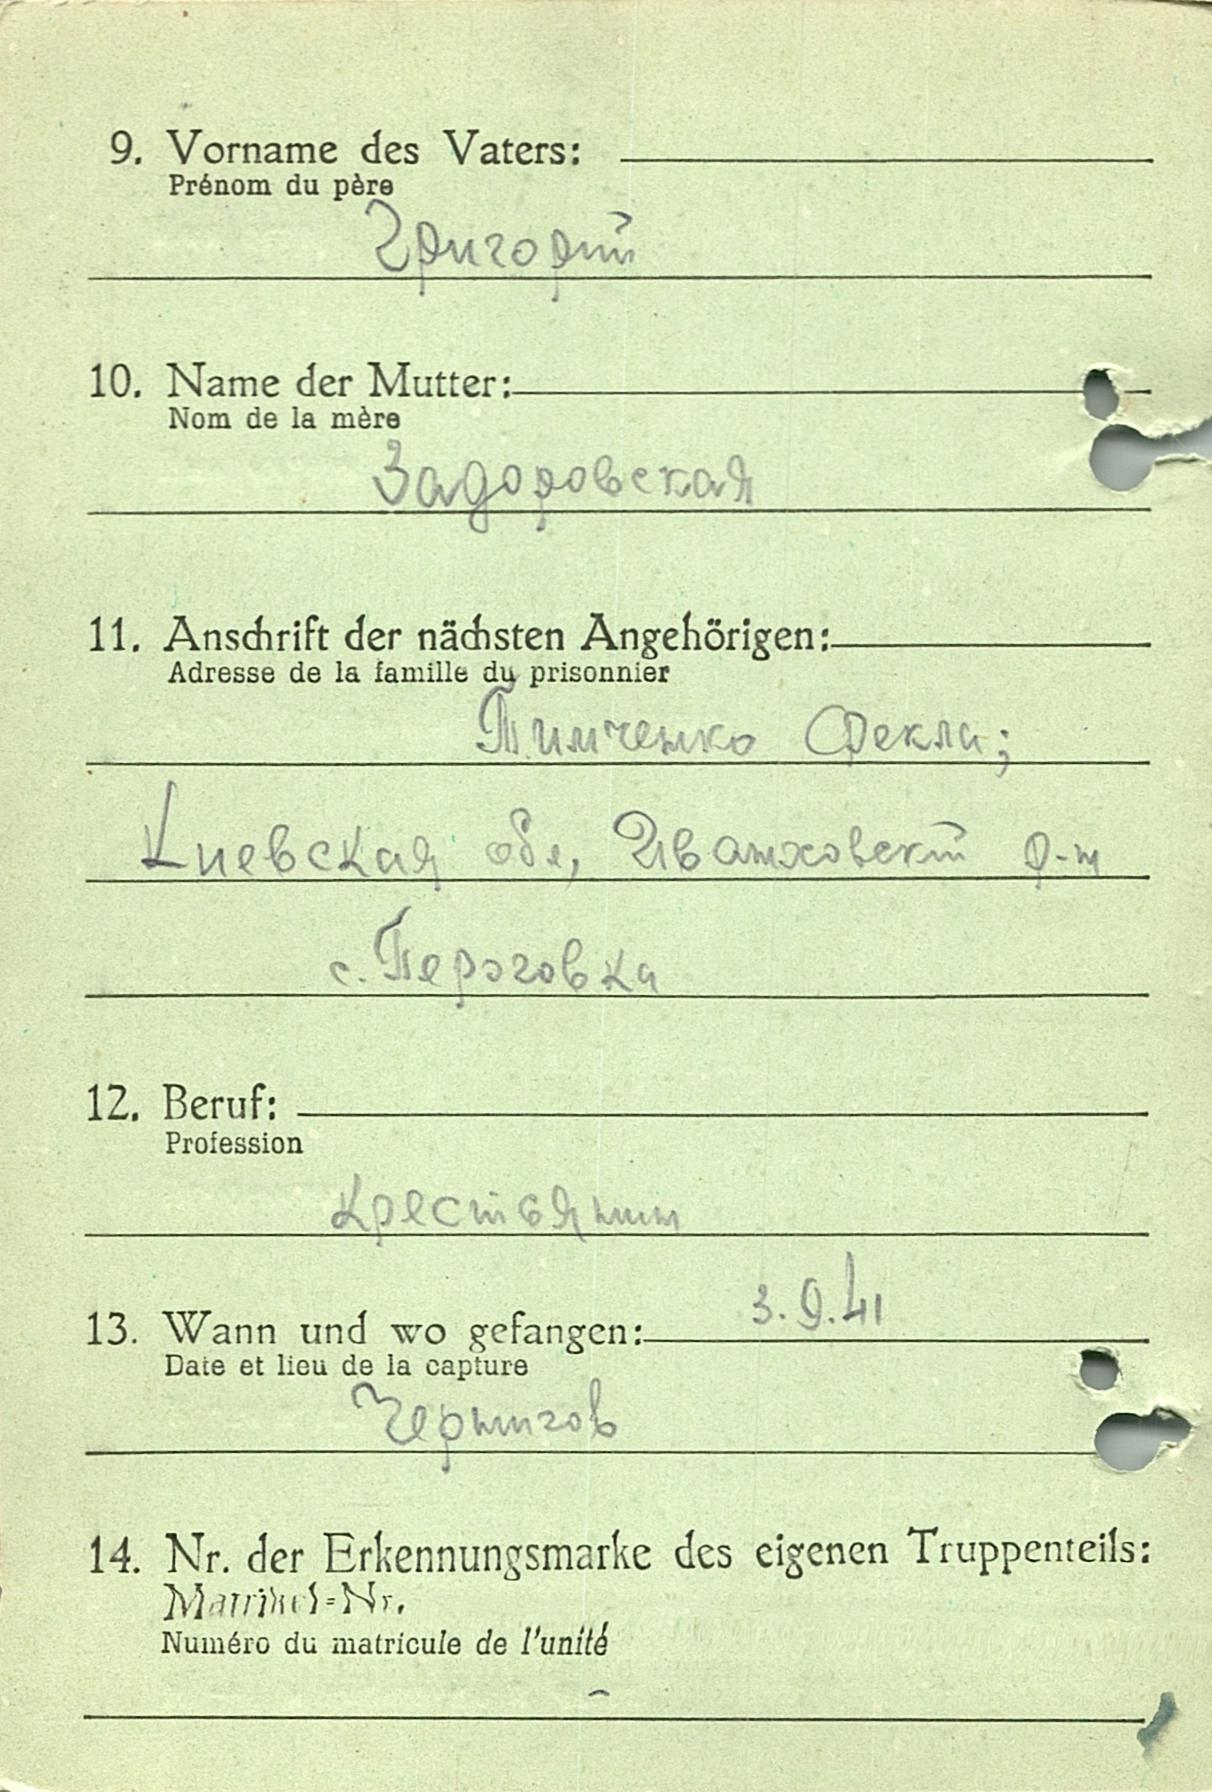 9. Vorname des Vaters:
Prénom du père
Григорий
10. Name der Mutter:
Nom de la mère
Задоровская
11. Anschrift der nächsten Angehörigen:
Adresse de la famille du prisonnier
Тимченко Фекла;
Киевская обл, р-н
с.
12. Beruf:
Profession
крестьянин
3.9.41
13. Wann und wo gefangen:
Date et lieu de la capture
Чернигов
14. Nr. der Erkennungsmarke des eigenen Truppenteils:
Matrikel-Nr.
Numéro du matricule de l'unité